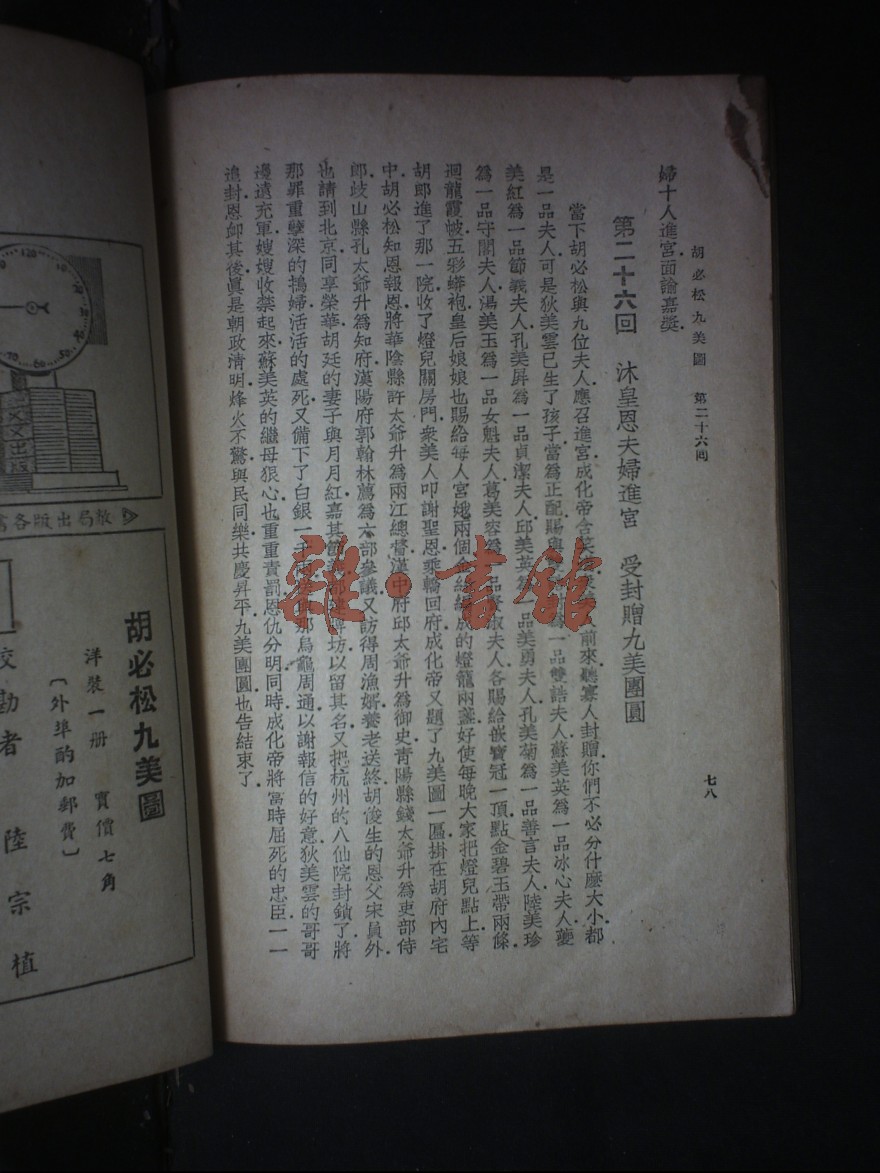 胡必松九美圖　第二十六回
七八
婦十人進宮面諭嘉獎
第二十六回　沐皇恩夫婦進宮　受封贈九美團圓
當下胡必松與九位夫人應召進宮成化帝含笑 前來聽寡人封贈你們不必分什麽大小都
是一品夫人可是狄美雲已生了孩子當爲正配賜與 一品雙誥夫人蘇美英爲一品冰心夫人夔
美紅爲一品節義夫人孔美屛爲一品貞潔夫人邱美英爲一品美勇夫人孔美菊爲一品善言夫人陸美珍
爲一品守閣夫人湯美玉爲一品女魁夫人葛美容爲一品賢淑夫人各賜給嵌寶冠一頂點金碧玉帶兩條
迴龍霞帔五彩蟒袍皇后娘娘也賜給每人宮娥兩個 成的燈龍兩盞好使每晚大家把燈兒點上等
胡郎進了那一院收了燈兒關房門衆美人叩謝聖恩乘轎回府成化帝又題了九美圖一匾掛在胡府內宅
中胡必松知恩報恩將華陰縣許太爺升爲兩江總督漢中府邱太爺升爲御史靑陽縣錢太爺升爲吏部侍
郎歧山縣孔太爺升爲知府漢陽府郭翰林薦爲六部參議又訪得周漁婿養老送終胡俊生的恩父宋員外
也請到北京同享榮華胡廷的妻子與月月紅嘉其節 建牌坊以留其名又把杭州的八仙院封鎖了將
那罪重孽深的鴇婦活活的處死又備下了白銀一千 那烏龜周通以謝報信的好意狄美雲的哥哥
邊遠充軍嫂嫂收禁起來蘇美英的繼母狠心也重重責罰恩仇分明同時成化帝將當時屈死的忠臣一一
追封恩卹其後眞是朝政清明烽火不驚與民同樂共慶昇平九美團圓也告結束了
雜·書館
120
敝局出版各書
胡必松九美圖
洋裝一册　實價七角
〔外埠酌加郵費〕
校勘者　陸宗植